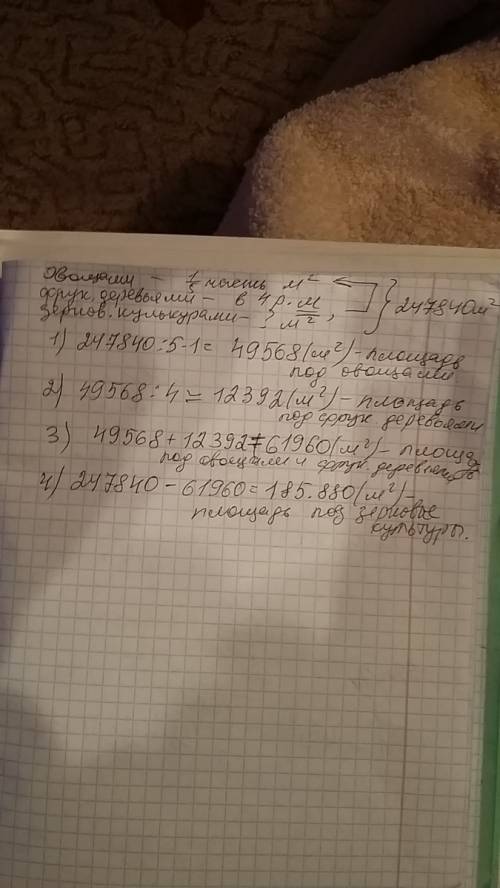 Овощами – 1/5 часть м²
фрук. деревьями – в 4 р. м
зернов. культурами – ? м²,
} 247840 м²
1) 247840:5·1 = 49568 (м²) – площадь
под овощами
2) 49568:4 = 12392 (м²) – площадь
под фрук деревьями
3) 49568 + 12392 = 61960 (м²) – площадь
под овощами и фрук. деревьями
4) 247840 – 61960 = 185.880 (м²) –
площадь под зерновые
культуры.